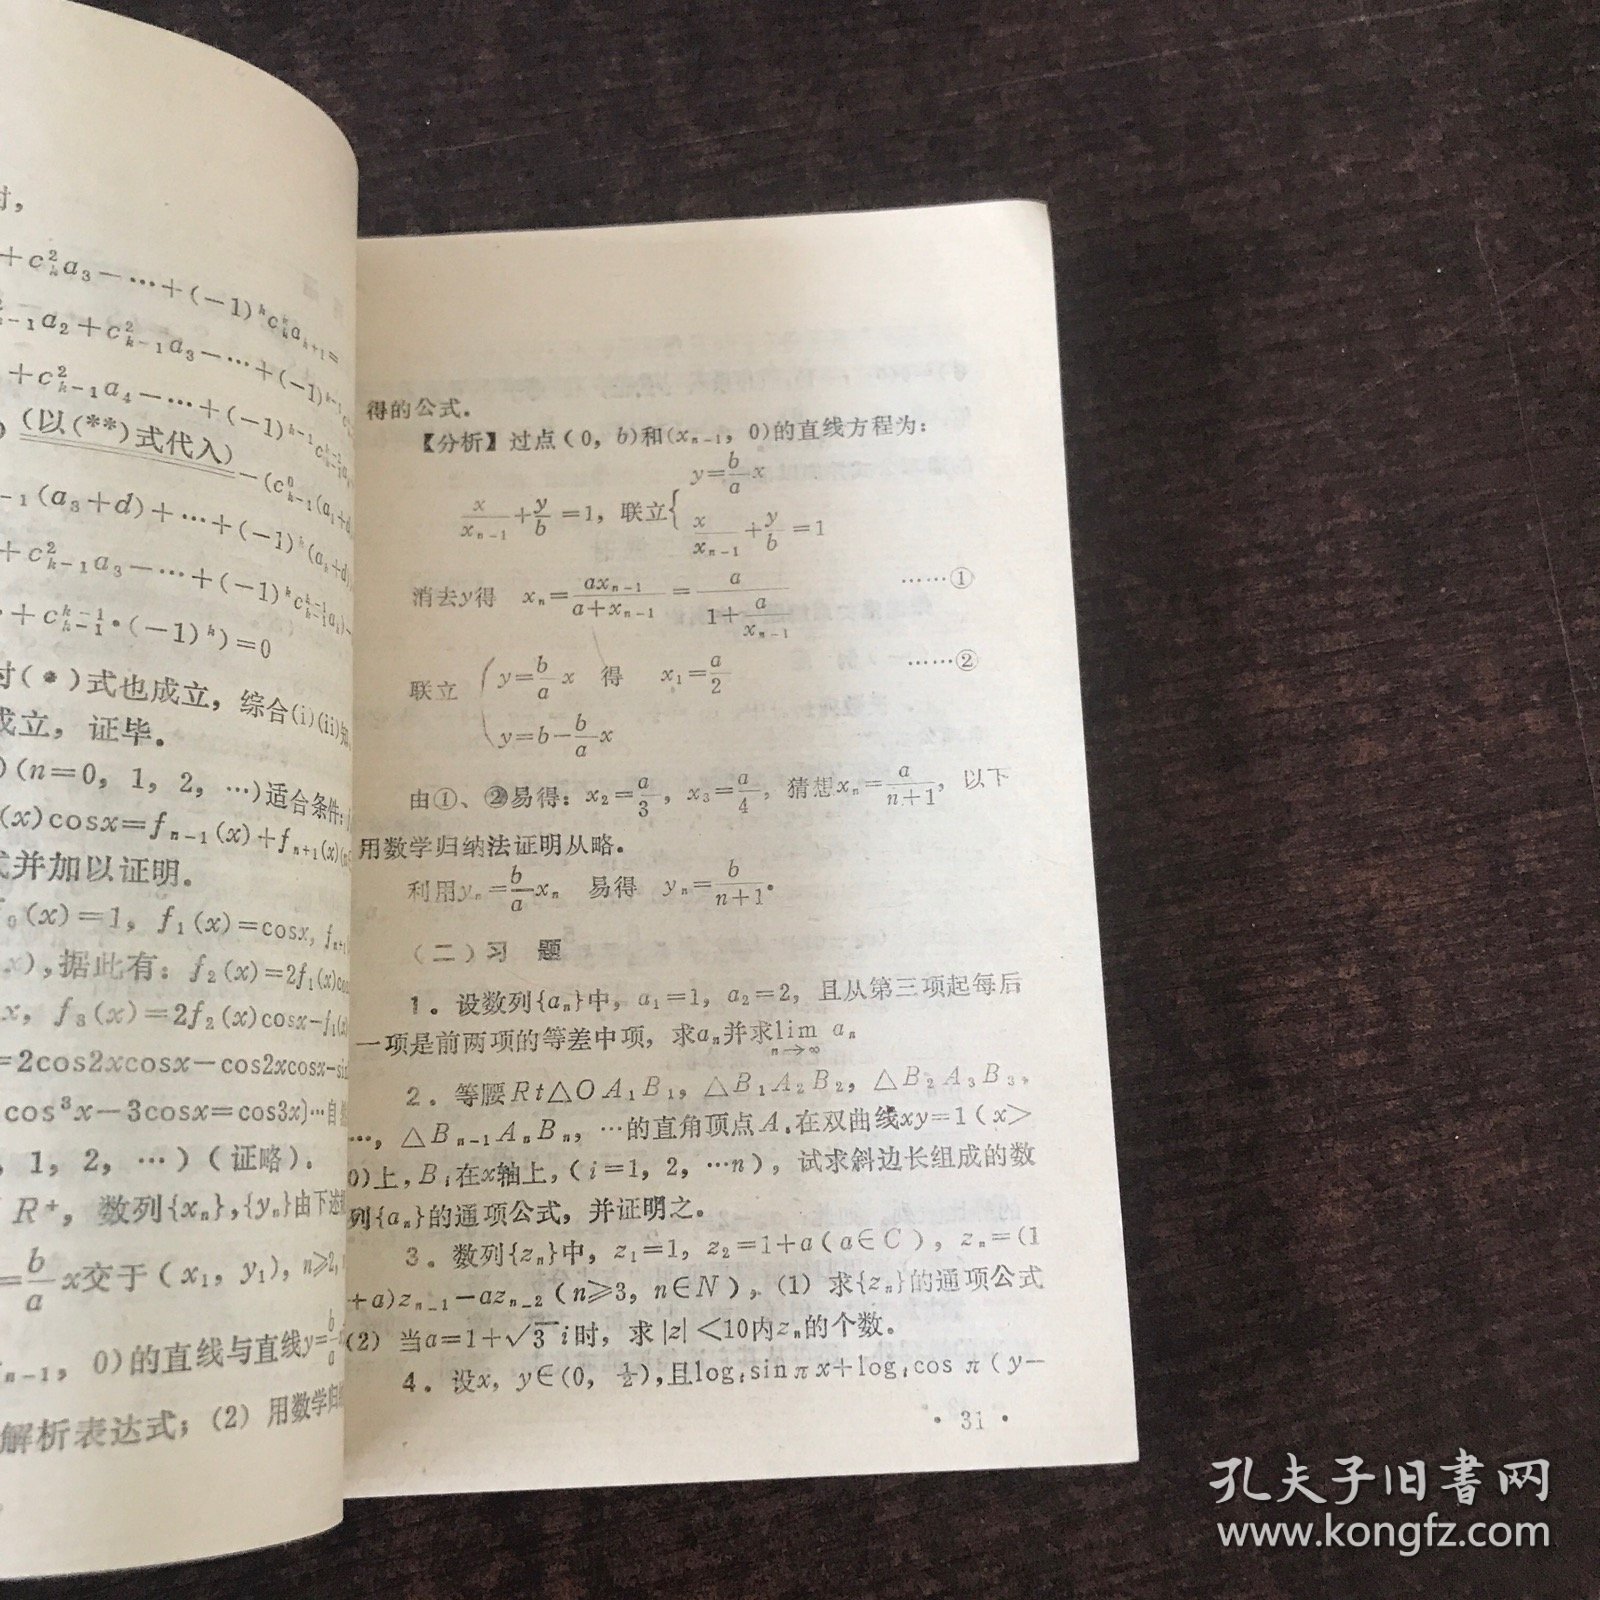 时,
+c²ₖa₃-…+(-1)ᵏcᵏₖaₖ₊₁=
₋₁a₂+c²ₖ₋₁a₃-…+(-1)ᵏ⁻¹c
+c²ₖ₋₁a₄-…+(-1)ᵏ⁻¹cᵏ⁻¹ₖ₋₁a
(以(**)式代入)-(c⁰ₖ₋₁(a₁+d
₋₁(a₃+d)+…+(-1)ᵏ(aₖ+d)
+c²ₖ₋₁a₃-…+(-1)ᵏcᵏ⁻¹ₖ₋₁aₖ)-
+cᵏ⁻¹ₖ₋₁·(-1)ᵏ)=0
时(*)式也成立, 综合(i)(ii)知
成立, 证毕.
)(n=0, 1, 2, …)适合条件:
(x)cosx=fₙ₋₁(x)+fₙ₊₁(x)
式并加以证明.
f₀(x)=1, f₁(x)=cosx, fₙ₊₁
x),据此有: f₂(x)=2f₁(x)cos
x, f₃(x)=2f₂(x)cosx-f₁(x)
=2cos2xcosx-cos2xcosx-sin
cos³x-3cosx=cos3x)…自
, 1, 2, …)(证略).
R⁺, 数列{xₙ},{yₙ}由下述
=b/a x交于(x₁, y₁), n≥2,
ₙ₋₁, 0)的直线与直线y=b/a
解析表达式; (2) 用数学归
得的公式.
【分析】过点(0, b)和(xₙ₋₁, 0)的直线方程为:
x/xₙ₋₁+y/b=1, 联立{y=b/a x
x/xₙ₋₁+y/b=1
消去y得 xₙ=axₙ₋₁/(a+xₙ₋₁)=a/(1+a/xₙ₋₁) ……①
联立{y=b/a x 得 x₁=a/2 ……②
y=b-b/a x
由①、②易得: x₂=a/3, x₃=a/4, 猜想xₙ=a/(n+1), 以下
用数学归纳法证明从略.
利用yₙ=b/a xₙ 易得 yₙ=b/(n+1).
(二)习 题
1. 设数列{aₙ}中, a₁=1, a₂=2, 且从第三项起每后
一项是前两项的等差中项, 求aₙ并求lim n→∞ aₙ
2. 等腰Rt△OA₁B₁, △B₁A₂B₂, △B₂A₃B₃,
…, △Bₙ₋₁AₙBₙ, …的直角顶点Aᵢ在双曲线xy=1(x>
0)上, Bᵢ在x轴上, (i=1, 2, …n), 试求斜边长组成的数
列{aₙ}的通项公式, 并证明之.
3. 数列{zₙ}中, z₁=1, z₂=1+a(a∈C), zₙ=(1
+a)zₙ₋₁-azₙ₋₂(n≥3, n∈N), (1) 求{zₙ}的通项公式
(2) 当a=1+√3i时, 求|z|<10内zₙ的个数.
4. 设x, y∈(0, ½), 且logₜsinπx+logₜcos π(y-
· 31 ·
孔夫子旧书网
www.kongfz.com